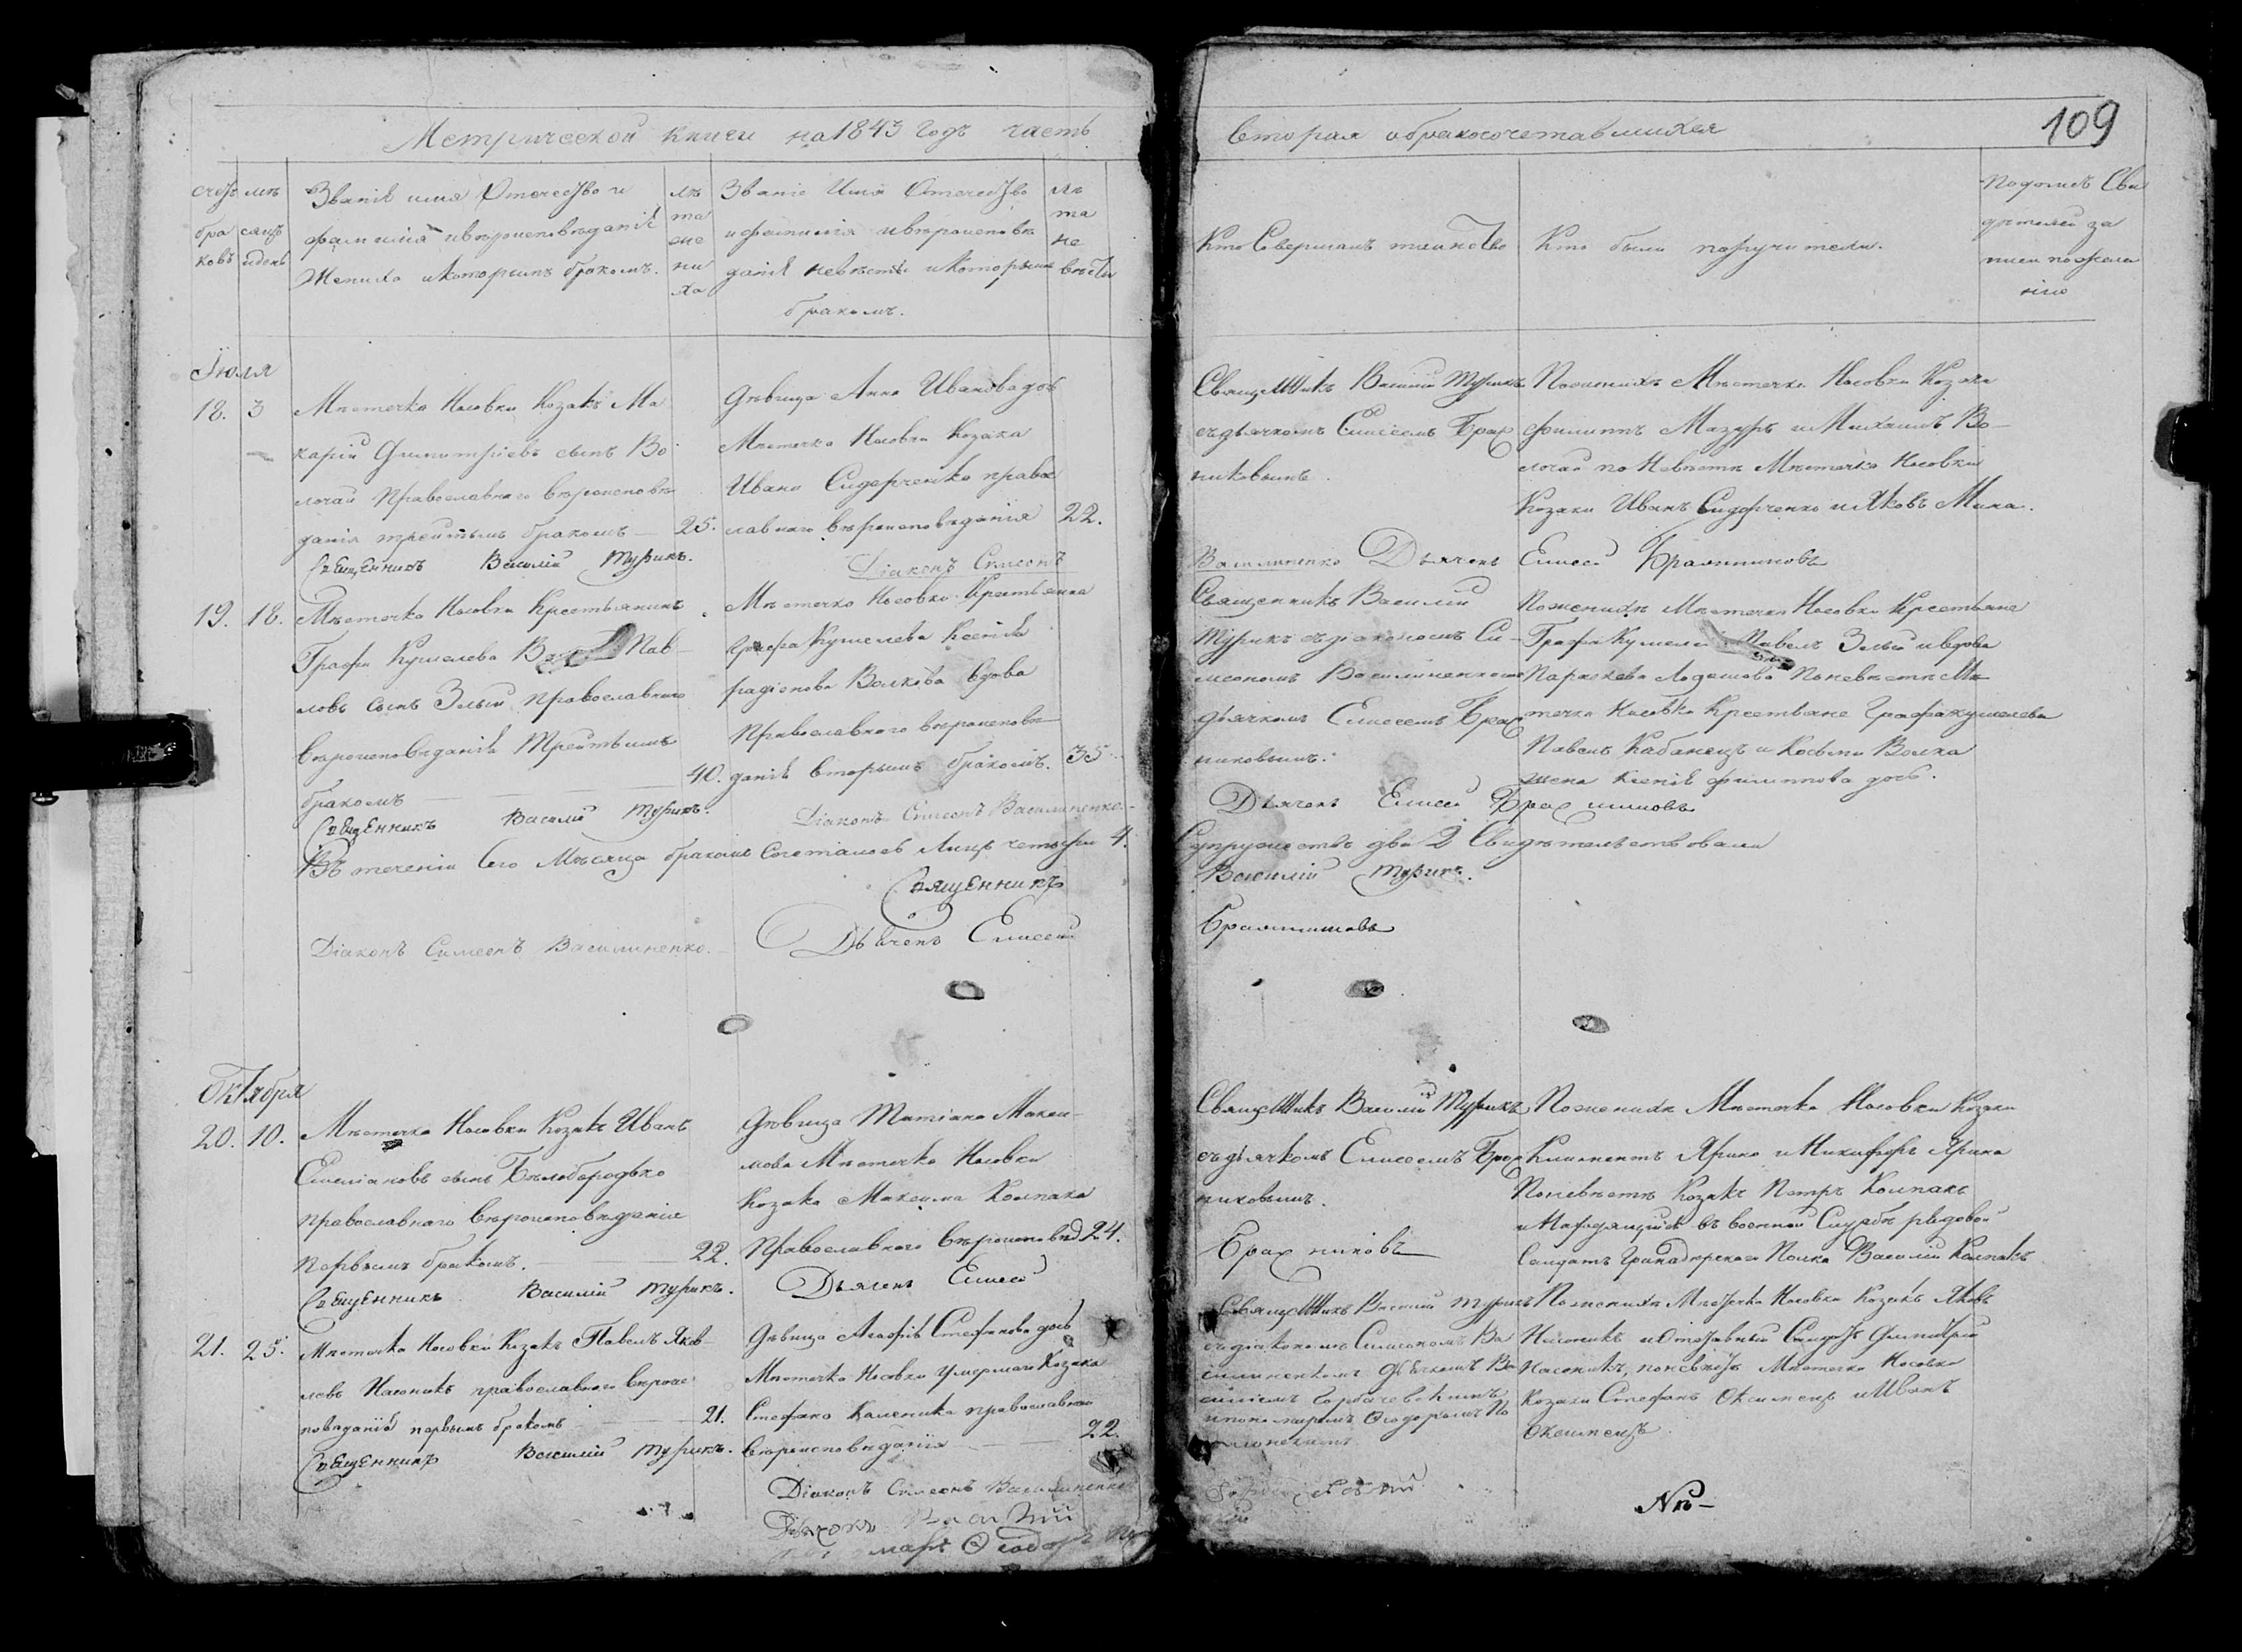 Метрической книги на 1843 Годъ часть
Вторая о бракосочетавшихся
109
счетъ бра ковъ
мѣ сяцъ и день
Званіе имя Отечество и
фамилія и вѣроисповѣданіе
Жениха и которымъ бракомъ.
лѣ та же ни ха
Званіе Имя Отечество
и фамилія и вѣроисповѣ
даніе невѣсты и которымъ
бракомъ.
лѣ та не вѣсты
Кто Совершалъ таинство
Кто были поручители.
Подпись Сви
дѣтелей за
писи по жела
нію
Іюля
18. 3
Мѣстечка Носовки Козакъ Ма
карій Димитріевъ сынъ Во
лочай православнаго вѣроисповѣ
данія третьимъ бракомъ — 25.
Священникъ Василій Турикъ.
Дѣвица Анна Иванова дочь
Мѣстечка Носовки Козака
Ивана Сидорченка право
славнаго вѣроисповѣданія 22.
Діаконъ Симеонъ
Священникъ Василій Турикъ
съ дьячкомъ Елисеемъ Брах
никовымъ.
По женихѣ Мѣстечка Носовки Козаки
Филиппъ Мазуръ и Михаилъ Во-
лочай по Невѣстѣ Мѣстечка Носовки
Козаки Иванъ Сидорченко и Яковъ Мина.
Василиненко Дьячекъ Елисей Брахниковъ
19. 18.
Мѣстечка Носовки Крестьянинъ
Графа Кушелева Пав-
ловъ сынъ Злый православнаго
вѣроисповѣданія третьимъ
бракомъ — 40.
Священникъ Василій Турикъ.
Мѣстечка Носовки Крестьянка
Графа Кушелева Ксенія
Радіонова Волкова вдова
православнаго вѣроисповѣ-
данія вторымъ бракомъ. 35.
Діаконъ Симеонъ Василиненко.
Священникъ Василій
Турикъ съ діакономъ Си-
меономъ Василиненкомъ
дьячкомъ Елисеемъ Брах
никовымъ.
По женихѣ Мѣстечка Носовки Крестьяне
Графа Кушелева Павелъ Злый и вдова
Параскева по невѣстѣ Мѣ
течка Носовки Крестьяне Графа Кушелева
Павелъ Кабанецъ и Косьмы Волка
жена Ксенія Филиппова дочь.
Дьячекъ Елисей Брахниковъ
Въ теченіи Сего Мѣсяца бракомъ Сочеталось Лицъ четыри 4.
Супружествъ два 2 Свидѣтельствовали
Священникъ
Василій Турикъ.
Діаконъ Симеонъ Василиненко.
Дьячекъ Елисей
Брахниковъ
Октября
20. 10.
Мѣстечка Носовки Козакъ Иванъ
Емеліановъ сынъ Бѣлобородько
православнаго вѣроисповѣданія
первымъ бракомъ. — 22.
Священникъ Василій Турикъ.
Дѣвица Татіана Макси-
мова Мѣстечка Носовки
Козака Максима Колпака
православнаго вѣроисповѣд 24.
Дьячекъ Елисей
Священникъ Василій Турикъ
съ дьячкомъ Елисеемъ Брах
никовымъ.
Брахниковъ
По женихѣ Мѣстечка Носовки Козаки
Климентъ Ярина и Никифоръ Ярина
По невѣстѣ Козакъ Петръ Колпакъ
и Находящійся въ военной Службѣ рядовой
Солдатъ Гранадирскаго Полка Василій Колпакъ
21. 25.
Мѣстечка Носовки Козакъ Павелъ Яков-
левъ Насоникъ православнаго вѣроис
повѣданія первымъ бракомъ — 21.
Священникъ Василій Турикъ.
Дѣвица Агафія Стефанова дочь
Мѣстечка Носовки умершаго Козака
Стефана Каленика православнаго
вѣроисповѣданія — 22.
Діаконъ Симеонъ Василиненко
Дьячекъ Василій
Ѳеодоръ
Священникъ Василій Турикъ
съ діакономъ Симеономъ Ва
силиненкомъ дьячкомъ Ва
силіемъ Горбачевскимъ
пономаремъ Ѳеодоромъ
По женихѣ Мѣстечка Носовки Козакъ Яковъ
Насоникъ и Отставный Солдатъ Димитрій
Насоникъ, по невѣстѣ Мѣстечка Носовки
Козаки Стефанъ Оксимецъ и Иванъ
Оксимецъ.